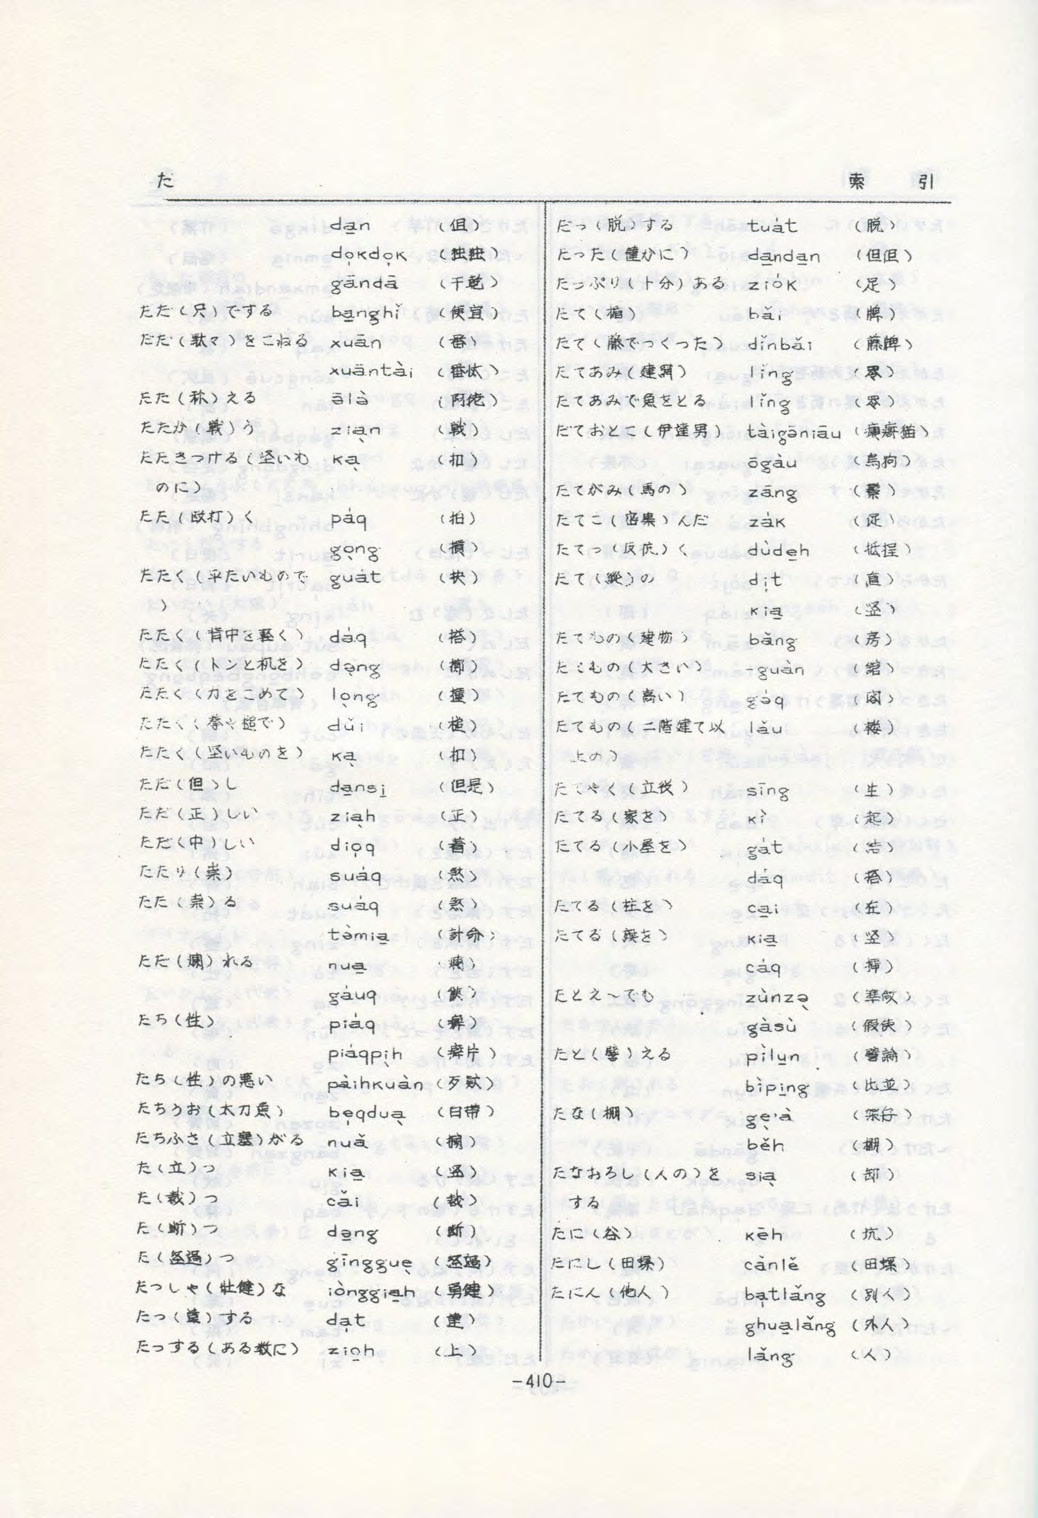 た
索引
dan (但)
dokdok (独独)
gāndā (干乾)
ただ(只)でする banghǐ (便宜)
だだ(駄々)をこねる xuān (番)
xuāntài
たた(称)える ālà (阿佬)
たたか(戦)う zian (戦)
たたきつける(堅いも ka (扣)
のに)
たた(殴打)く páq (拍)
gong (摃)
たたく(平たいもので guát
)
たたく(背中を軽く) dáq (搭)
たたく(トンと机を) dang
たたく(力をこめて) long (撞)
dǔi (槌)
たたく(堅いものを) ka (扣)
ただ(但)し dansi (但是)
ただ(正)しい ziah (正)
ただ(中)しい dioq (着)
たたり(祟) suáq (煞)
たた(祟)る suáq (煞)
tàmia (計命)
ただ(爛)れる nua
gáuq
たち(性) piáq (癖)
piáqpih (癖片)
たち(性)の悪い pàihkuàn (歹款)
たちうお(太刀魚) beqdua (白帯)
たちふさ(立塞)がる nuǎ (攔)
た(立)つ kia (竪)
た(裁)つ cǎi (裁)
た(断)つ dang (断)
gīnggue
たっしゃ(壮健)な iònggiah (勇健)
たっ(達)する dat (達)
たっする(ある数に) zioh (上)
だっ(脱)する tuát (脱)
たった(僅かに) dandan (但但)
たっぷり(十分)ある ziók (足)
たて(楯) bǎi (牌)
たて(藤でつくった) dǐnbǎi (藤牌)
たてあみ(建網) lǐng
たてあみで魚をとる lǐng
だておとこ(伊達男) tàigōniāu
ōgàu (烏狗)
たてがみ(馬の) zāng (鬃)
zák (促)
dùdeh (抵捏)
たて(縦)の dit (直)
kia (竪)
たてもの(建物) bǎng (房)
たてもの(大きい) -guàn (舘)
たてもの(高い) gáq (閣)
たてもの(二階建て以 lǎu (楼)
上の)
たてやく(立役) sīng (生)
たてる(家を) kì (起)
たてる(小屋を) gát (結)
dáq (搭)
たてる(柱を) cai (在)
kia (竪)
cáq (挿)
たとえ〜でも zùnza (準做)
gàsù (假使)
たと(譬)える pìlun (譬論)
bìping (比並)
たな(棚) ge'à (架仔)
běh (棚)
たなおろし(人の)を sia (卸)
する
たに(谷) kēh (坑)
たにし(田螺) cànlě (田螺)
たにん(他人) batlǎng (別人)
ghualǎng (外人)
lǎng (人)
-410-